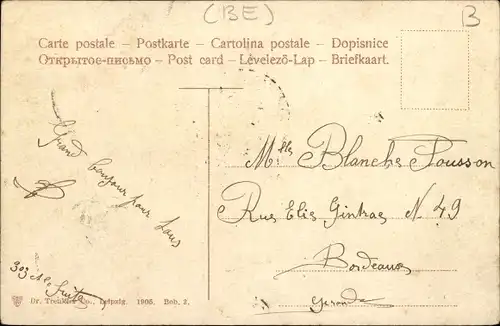 (BE)
B
Carte postale – Postkarte – Cartolina postale – Dopisnice
Открытое-письмо – Post card – Lēvelezō-Lap – Briefkaart.
Grand bonjour pour tous
Mlles Blanche Pousson
Rue Elie Gintrac N 49
Bordeaux
Gironde
Dr. Trenkler Co., Leipzig. 1906. Bob. 2.